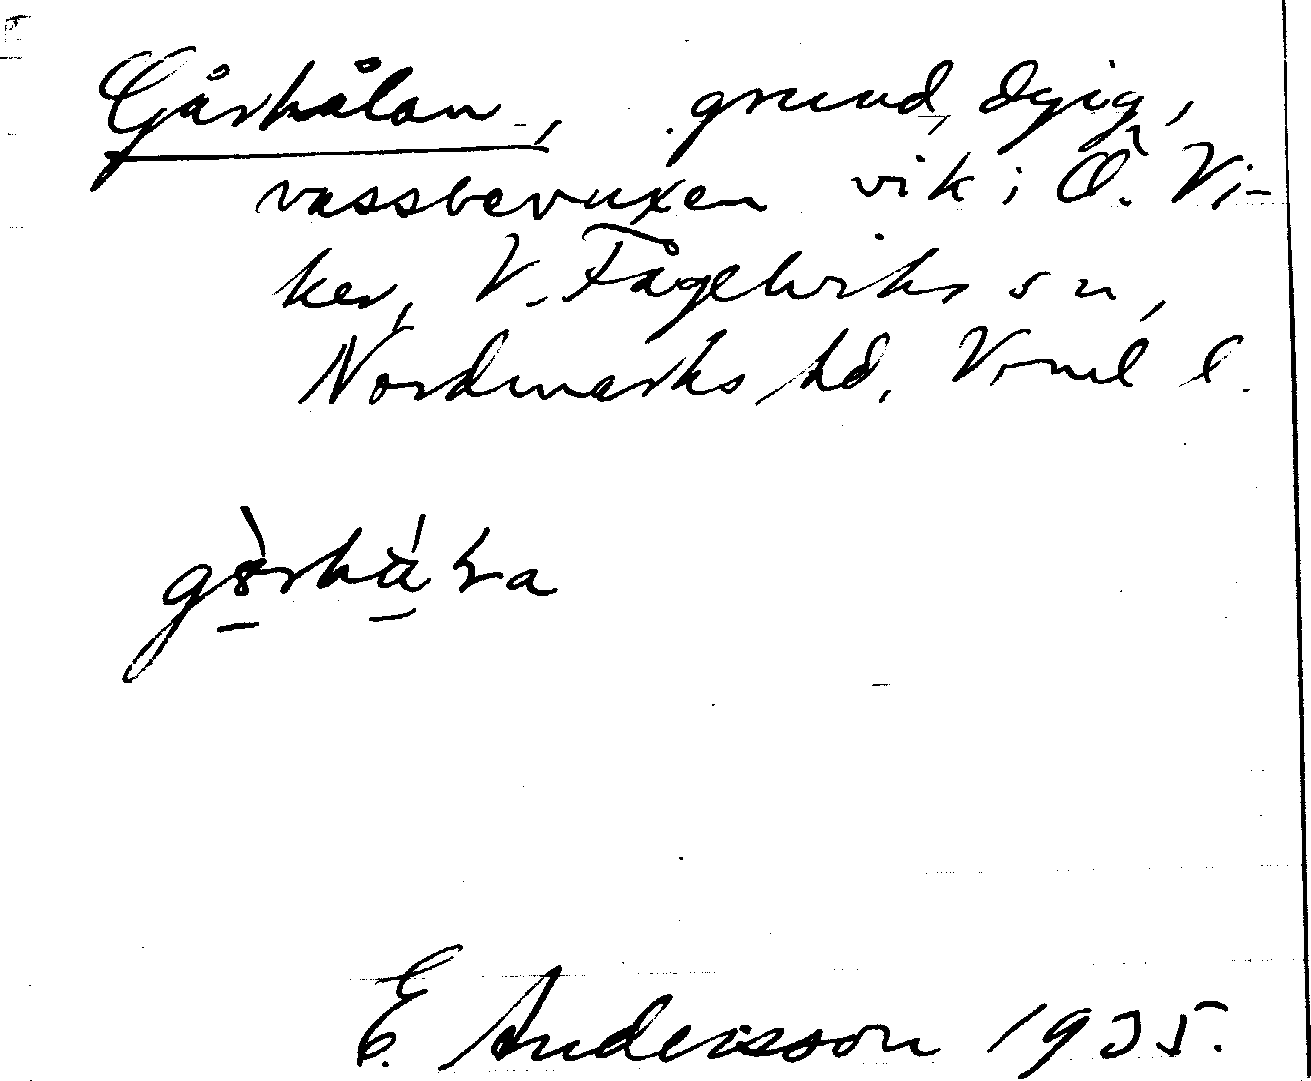 Gårhålan, grund, dyig,
vassbevuxen vik i Ö. Vi-
ker, V. Fågelviks sn,
Nordmarks hd, Vrml l.
E. Andersson 1935.